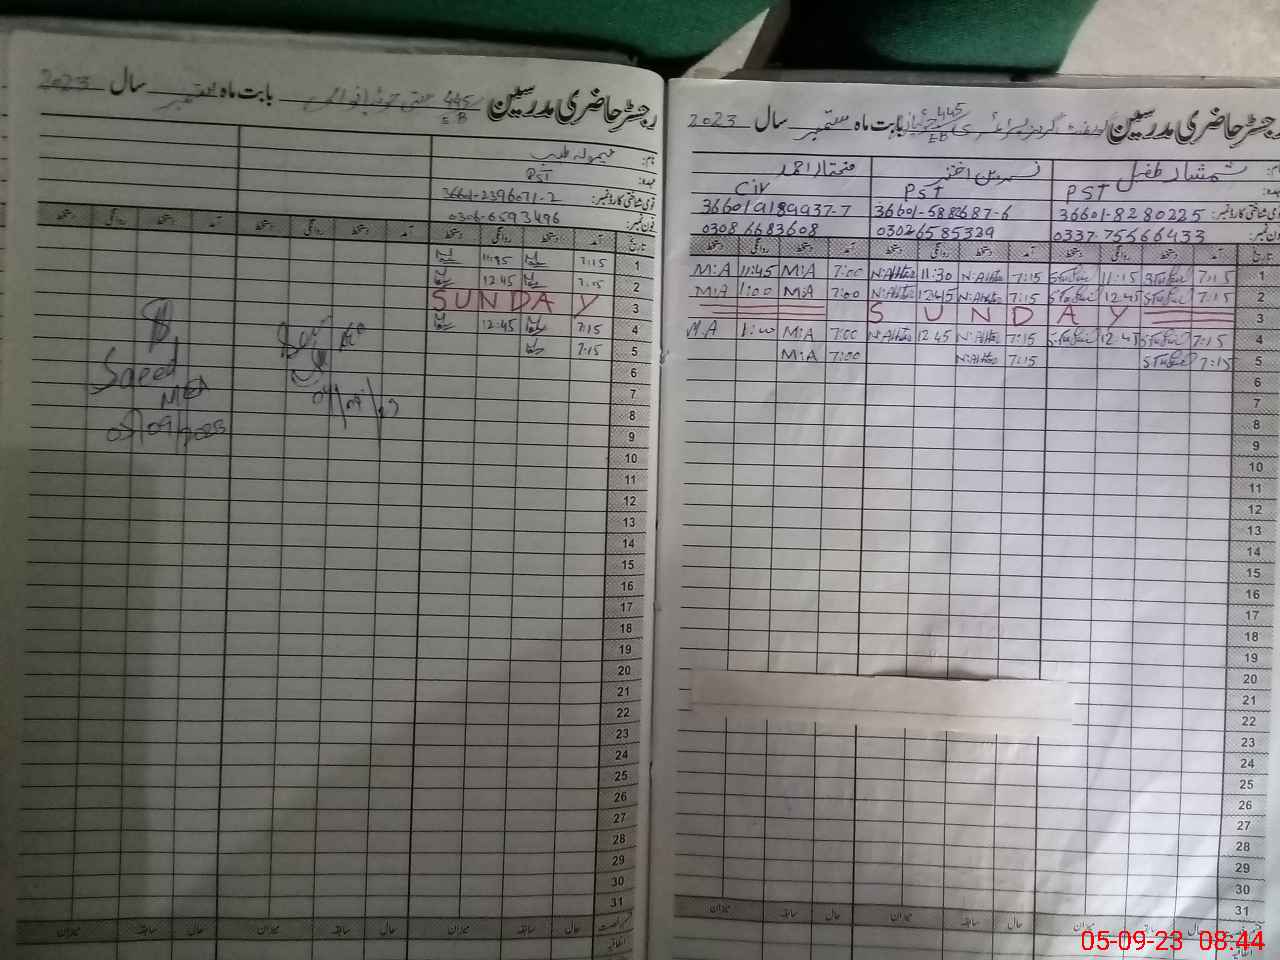 رجسٹر حاضری مدرسین 445/EB بابت ماہ ستمبر سال 2023
نام: شمشاد طفیل نسرین اختر مختار احمد
عہدہ: PST PST Civ
قومی شناختی کارڈ نمبر: 36601-8280225 36601-5882687-6 366019189937-7
فون نمبر: 0337-75566433 03026585329 03086683608
تاریخ آمد دستخط روانگی دستخط آمد دستخط روانگی دستخط آمد دستخط روانگی دستخط
1 7:15 11:15 7:15 11:30 7:00 M:A 11:45 M:A
2 7:15 12:45 7:15 12:45 7:00 M:A 1:00 M:A
3 S U N D A Y
4 7:15 12:45 7:15 12:45 7:00 M:A 1:00 M:A
5 7:15 7:15 7:00 M:A
6
7
8
9
10
11
12
13
14
15
16
17
18
19
20
21
22
23
24
25
26
27
28
29
30
31
حال سابقہ میزان حال سابقہ میزان حال سابقہ میزان
رجسٹر حاضری مدرسین 445/EB بابت ماہ ستمبر سال 2023
نام:
عہدہ: PST
قومی شناختی کارڈ نمبر: 36601-2396071-2
فون نمبر: 0306-6593496
تاریخ آمد دستخط روانگی دستخط آمد دستخط روانگی دستخط آمد دستخط روانگی دستخط
1 7:15 11:45
2 7:15 12:45
3 SUNDAY
4 7:15 12:45
5 7:15
6
7
8
9
10
11
12
13
14
15
16
17
18
19
20
21
22
23
24
25
26
27
28
29
30
31
حال سابقہ میزان حال سابقہ میزان حال سابقہ میزان
Saeed
MEA
05/09/2023
05-09-23 08:44